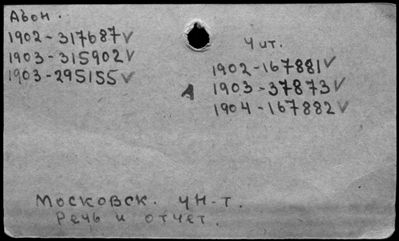 Абон.
1902-317687✓
1903-315902✓
1903-295155✓
Чит.
1902-167881✓
А 1903-37873✓
1904-167882✓
Московск. ун-т.
Речь и отчет.